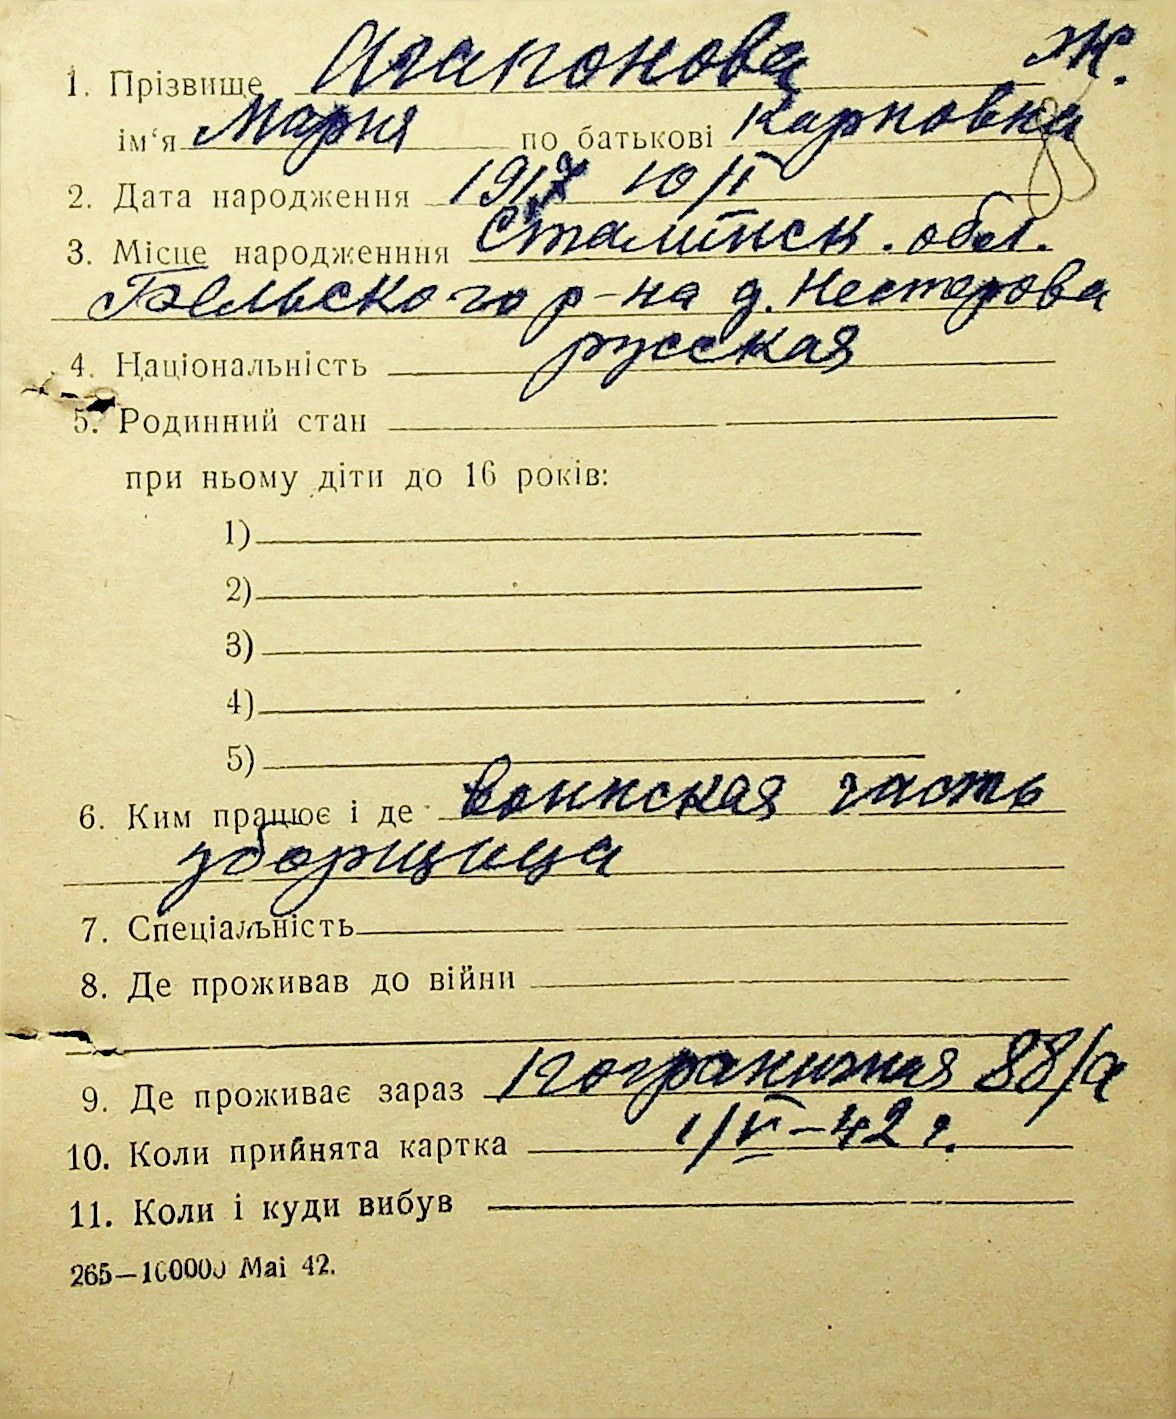 1. Прізвище Агапонова Ж.
ім'я Мария по батькові Карповна
2. Дата народження 1917 10/II
3. Місце народженння Сталинск. обл.
Бельского р-на д. Нестерова
4. Національність русская
5. Родинний стан
при ньому діти до 16 років:
1)
2)
3)
4)
5)
6. Ким працює і де воинская часть
уборщица
7. Спеціальність
8. Де проживав до війни
9. Де проживає зараз Пограничная 88/а
10. Коли прийнята картка 1/VI-42 г.
11. Коли і куди вибув
265—100000 Маі 42.